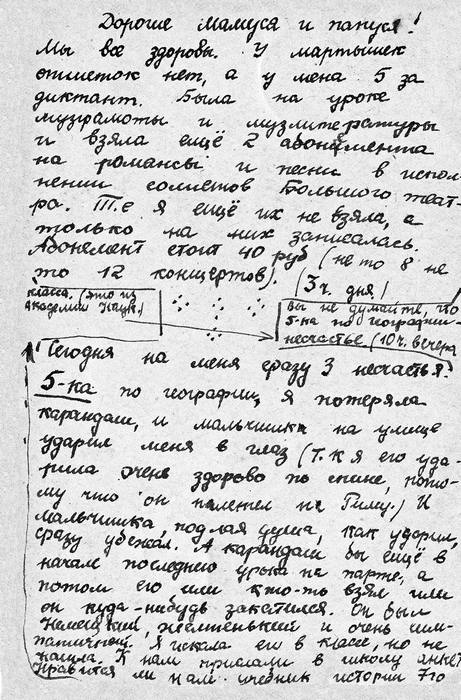 Дорогие Мамуся и папуся!
Мы все здоровы. У мартышек
отметок нет, а у меня 5 за
диктант. Была на уроке
музграмоты и музлитературы
и взяла ещё 2 абонемента
на романсы и песни в испол-
нении солистов Большого теат-
ра. Т.е я ещё их не взяла, а
только на них записалась.
Абонемент стоит 40 руб (не то 8 не
то 12 концертов). (3 ч. дня!
класса. (это из
Академии Наук.)
вы не думайте, что
5-ка по географии-
несчастье (10 ч. вечера
Сегодня на меня сразу 3 несчастья.
5-ка по географии, я потеряла
карандаш, и мальчишка на улице
ударил меня в глаз (т.к я его уда-
рила очень здорово по спине, пото-
му что он налетел на Римму.) И
мальчишка, подлая душа, как ударил,
сразу убежал. А карандаш бы ещё в
начале последнего урока на парте, а
потом его или кто-то взял или
он куда-нибудь закатился. Он был
немецкий, желтенький и очень сим-
патичный. Я искала его в классе, но не
нашла. К нам прислали в школу анкет
Нравится ли нам учебник истории 7го